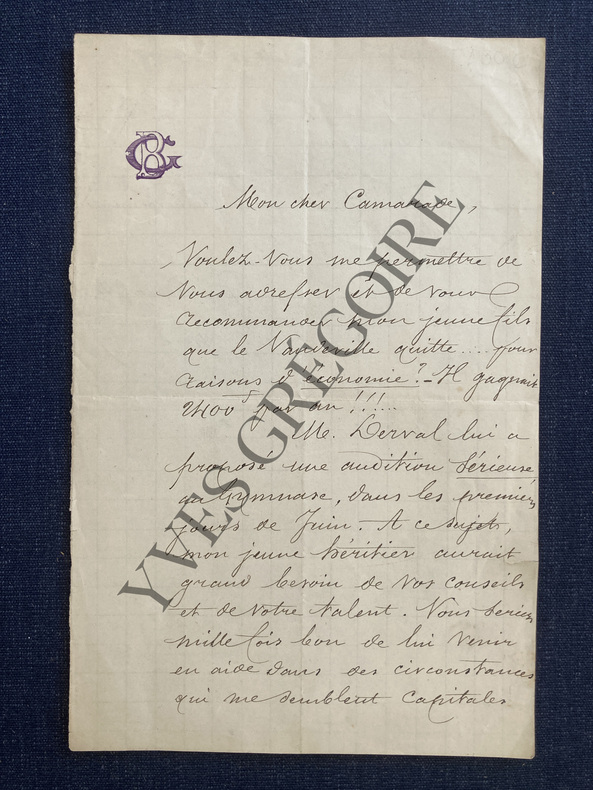 GB
Mon cher Camarade,
Voulez-vous me permettre de
vous adresser et de vous
recommander mon jeune fils
que le Vaudeville quitte.... pour
raisons d'économie? - Il gagnait
2400 f par an!!!...
M. Derval lui a
proposé une audition sérieuse
au Gymnase, dans les premiers
jours de Juin. A ce sujet,
mon jeune héritier aurait
grand besoin de vos conseils
et de votre talent. Vous seriez
mille fois bon de lui venir
en aide dans des circonstances
qui me semblent capitales
YVES GRÉGOIRE